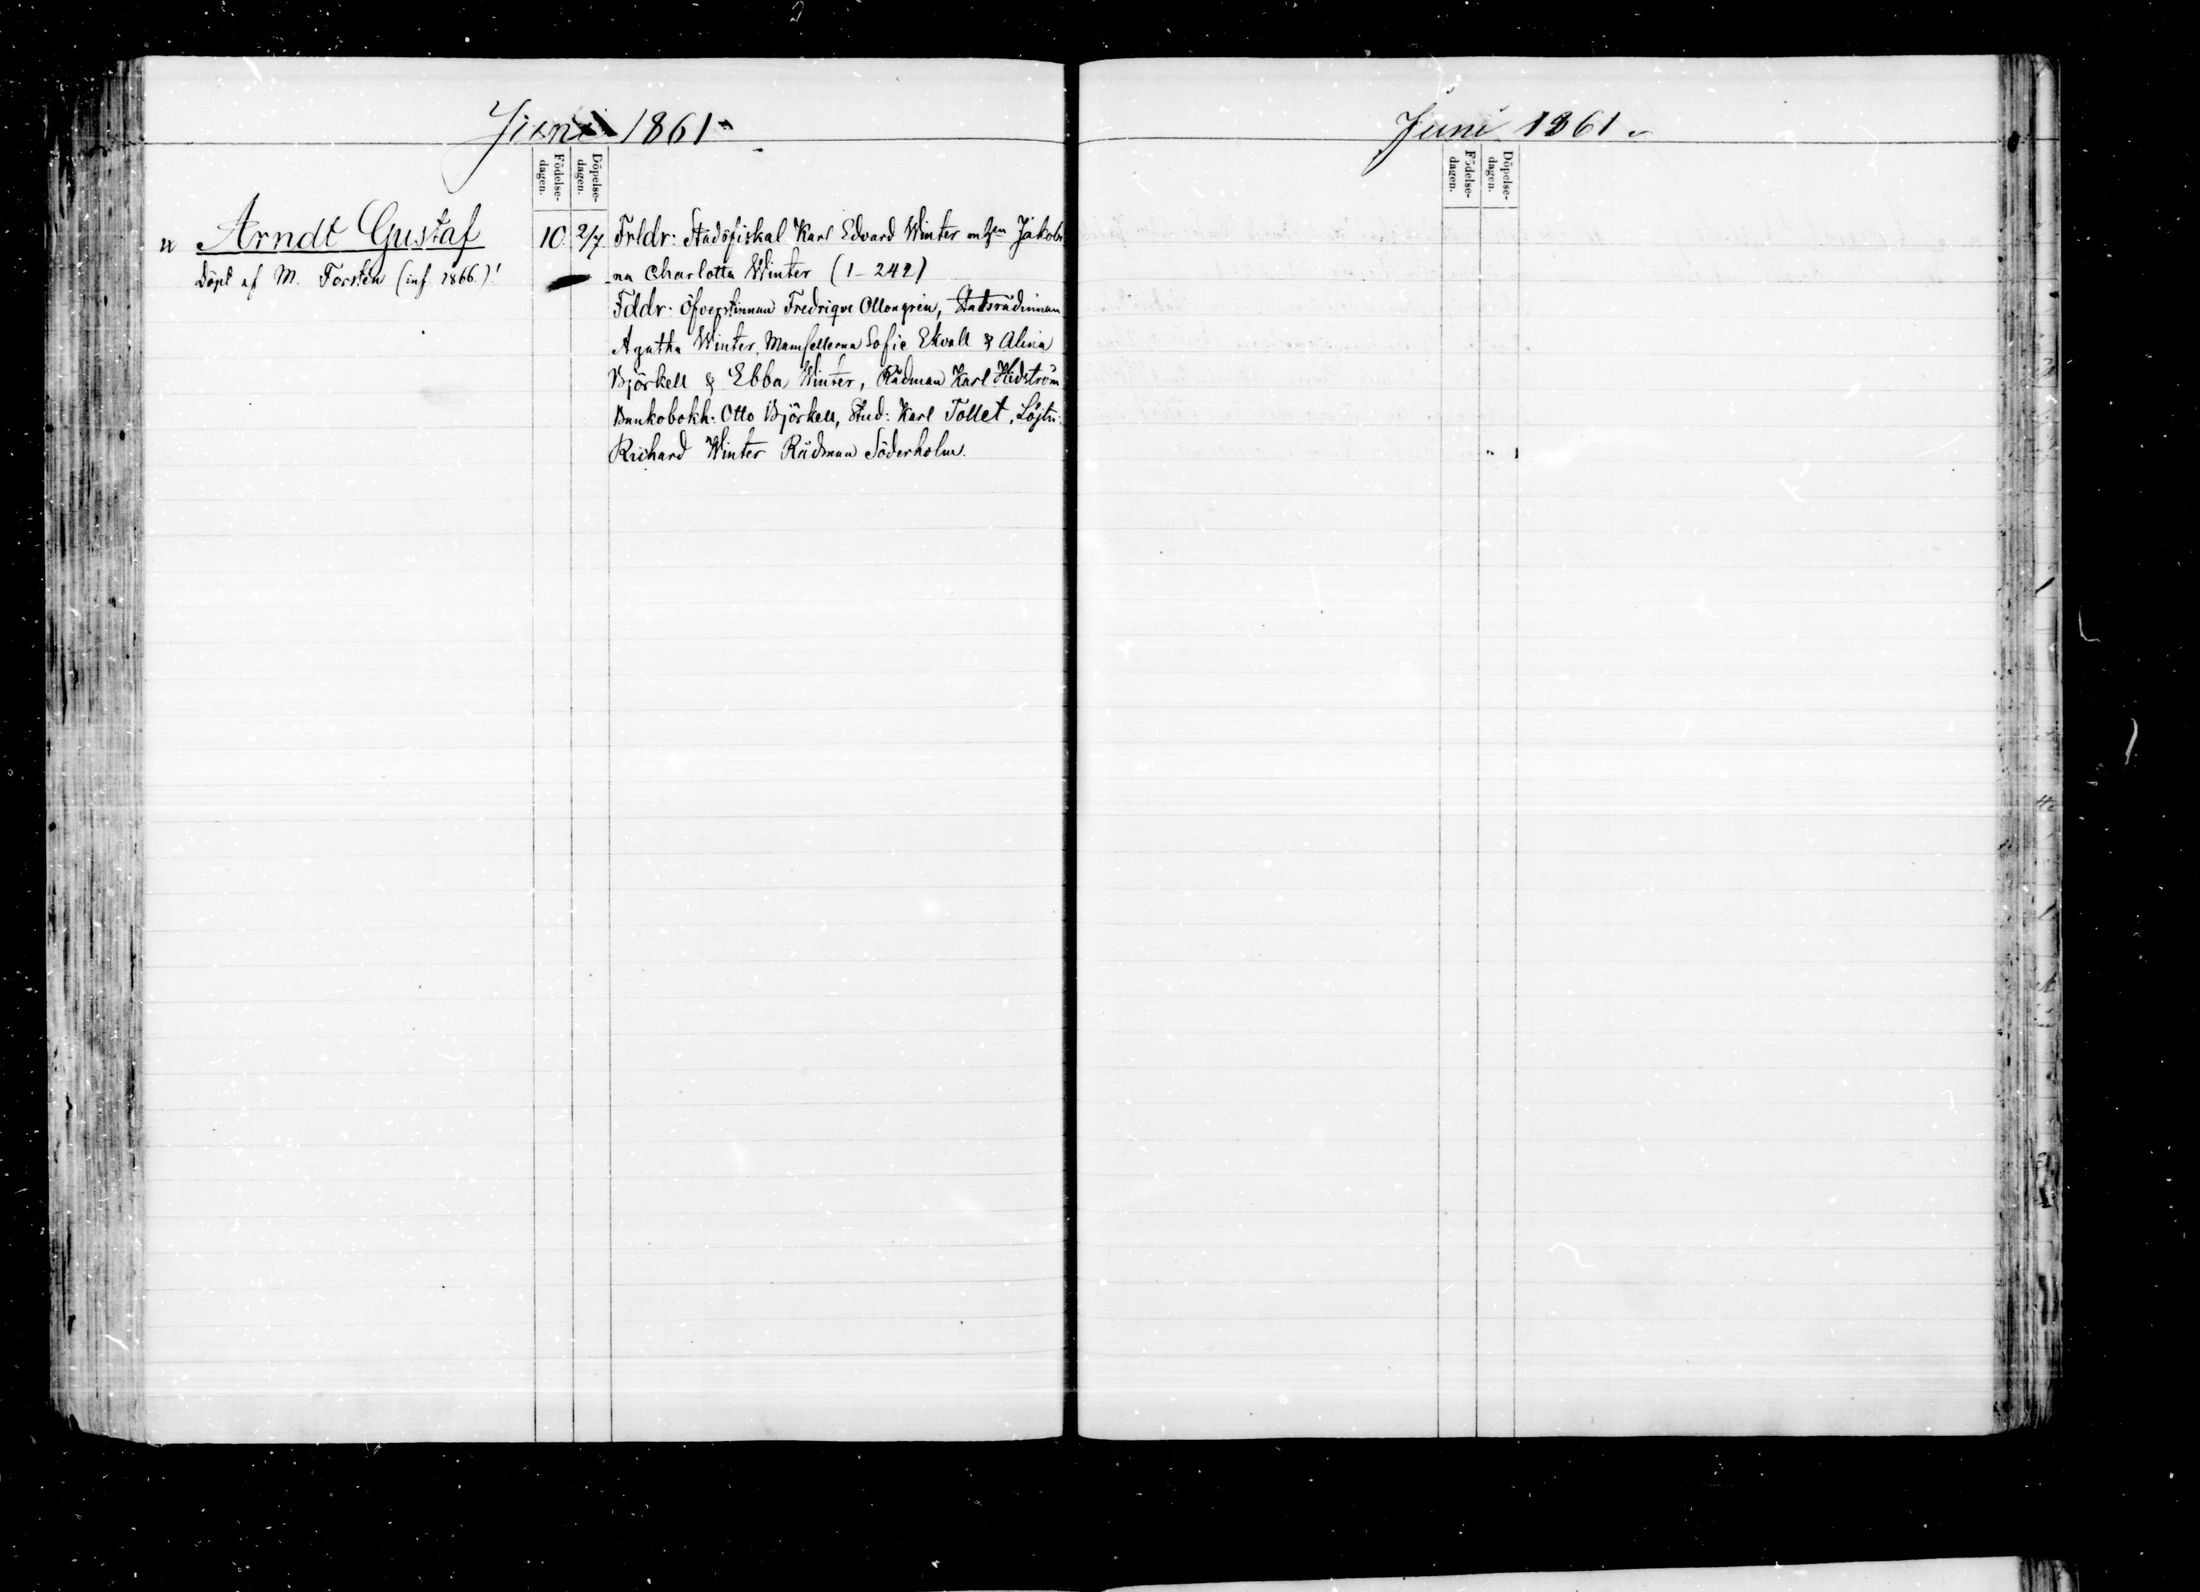 Juni 1861.
Födelse-
dagen.
Döpelse-
dagen.
Arndt Gustaf
10
2/7
Frldr: Stadsfiskal Karl Edvard Winter Jakobi
döpt af M. Forstén (inf 1866.)!
na Charlotta Winter (1-242)
Fddr: Öfverstinnan Fredrique Ollongrén, Statsrådinnan
Agatha Winter, Mamsellerna Sofie Ekvall & Alina
Björkell & Ebba Winter, Rådman Karl Hidström
Bankobokh. Otto Björkell, Stud: Karl Tollet, Löjtn:
Richard Winter Rådman Söderholm.
Juni 1861.
Födelse-
dagen.
Döpelse-
dagen.